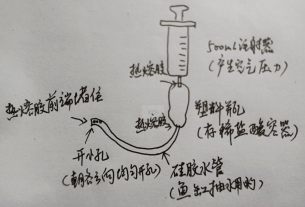 500ml注射器
(产生空气压力)
热熔胶
热熔胶前端堵住
塑料瓶
(存稀盐酸容器)
热熔胶
开小孔
(朝各方向均匀开孔)
硅胶水管
(鱼缸抽水用的)